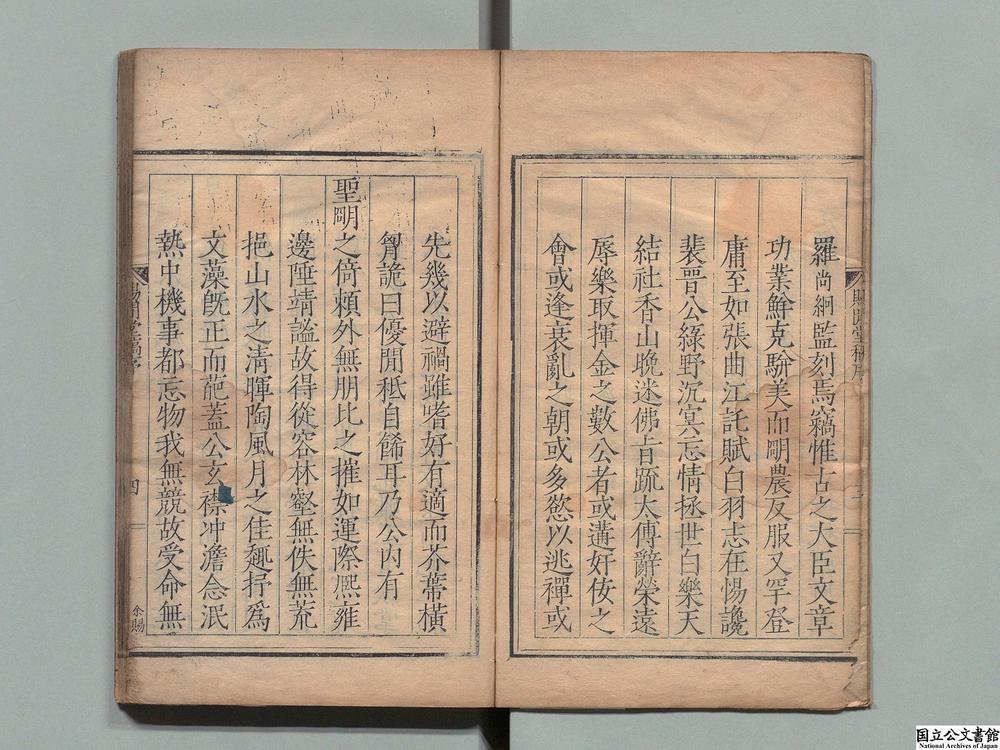 羅尚絅監刻焉竊惟古之大臣文章
功業鮮克駢美而眀農友服又罕登
庸至如張曲江託賦白羽志在惕讒
裴晋公綠野沉冥忘情拯世白樂天
結社香山晚迷佛旨䟽太傅辭榮遠
辱樂取揮金之數公者或遘奸佞之
會或逢衰亂之朝或多慾以逃禪或
先幾以避禍雖嗜好有適而芥蔕橫
胷詭曰優閒秪自餙耳乃公内有
聖眀之倚頼外無朋比之摧如運際熈雍
邊陲靖謐故得從容林壑無佚無荒
挹山水之清暉陶風月之佳趣抒爲
文藻旣正而葩蓋公玄襟冲澹念泯
熱中機事都忘物我無競故受命無
賜閒堂稿序
四
余賜
国立公文書館
National Archives of Japan